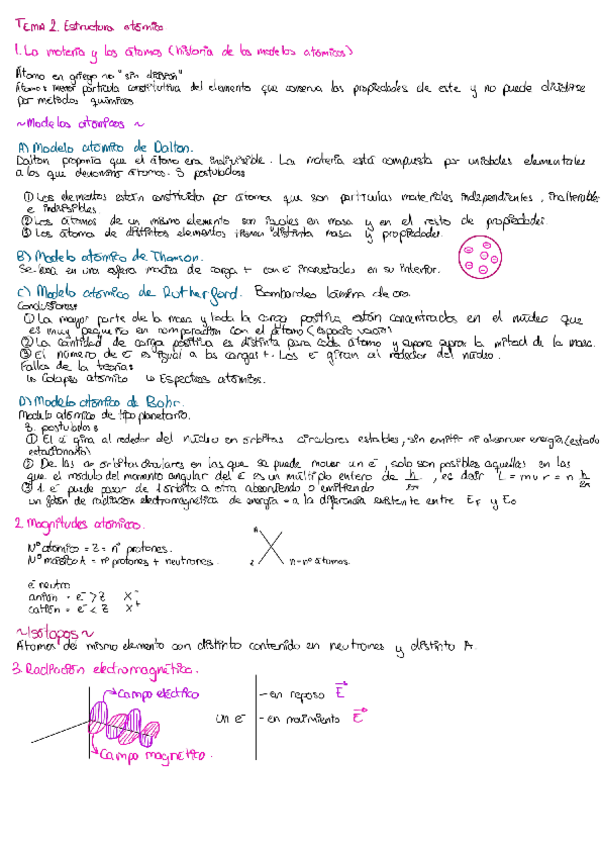 TEMA 2. Estructura atómica
1. La materia y los átomos (historia de los modelos atómicos)
Átomo en griego no "sin división"
Átomo: menor partícula constitutiva del elemento que conserva las propiedades de este y no puede dividirse
por métodos químicos
~Modelos atómicos ~
A) Modelo atómico de Dalton.
Dalton proponía que el átomo era indivisible. La materia está compuesta por unidades elementales
a los que denominó átomos. 3 postulados
① Los elementos están constituidos por átomos que son partículas materiales independientes, inalterables
e indivisibles.
② Los átomos de un mismo elemento son iguales en masa y en el resto de propiedades.
③ Los átomos de distintos elementos tienen distinta masa y propiedades.
B) Modelo atómico de Thomson.
Se basa en una esfera maciza de carga + con e⁻ incrustados en su interior.
C) Modelo atómico de Rutherford. Bombardeo lámina de oro.
Conclusiones:
① La mayor parte de la masa y toda la carga positiva están concentrados en el núcleo que
es muy pequeño en comparación con el átomo (espacio vacío)
② La cantidad de carga positiva es distinta para cada átomo y supone aprox la mitad de la masa.
③ El número de e⁻ es igual a las cargas +. Los e⁻ giran al rededor del núcleo.
Fallos de la teoría:
↳ Colapso atómico ↳ Espectros atómicos.
D) Modelo atómico de Bohr.
Modelo atómico de tipo planetario.
3 postulados
① El e⁻ gira al rededor del núcleo en órbitas circulares estables, sin emitir ni absorver energía (estado
estacionario)
② De las ∞ órbitas circulares en las que se puede mover un e⁻, solo son posibles aquellas en las
que el módulo del momento angular del e⁻ es un múltiplo entero de h/2π, es decir L = m v r = n h/2π
③ 1 e⁻ puede pasar de 1 órbita a otra absorbiendo o emitiendo
un fotón de radiación electromagnética de energía = a la diferencia existente entre EF y E0
2. Magnitudes atómicas.
Nº atómico = Z = nº protones.
Nº másico A = nº protones + neutrones.
A
X
Z n=nº átomos.
e⁻ neutro
anión = e⁻ > Z X⁻
catión = e⁻ < Z X⁺
~Isótopos~
Átomos del mismo elemento con distinto contenido en neutrones y distinto A.
3. Radiación electromagnética.
Campo eléctrico
Campo magnético.
un e⁻
- en reposo E
- en movimiento E